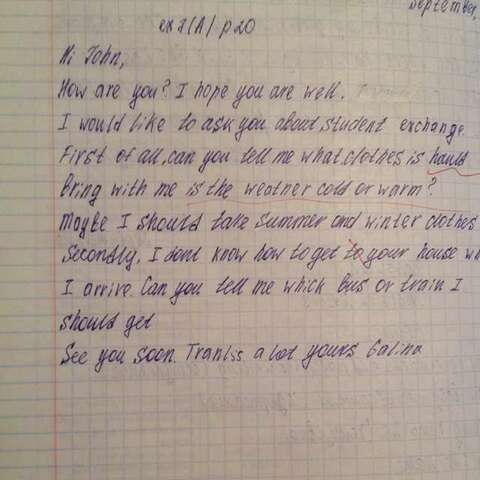 September,
ex 2(A) p 20
Hi John,
How are you? I hope you are well.
I would like to ask you about student exchange.
First of all, can you tell me what clothes is hauld
Bring with me is the weather cold or warm?
Maybe I should take summer and winter clothes
Secondly, I dont know how to get to your house
I arrive. Can you tell me which bus or train I
should get
See you soon. a lot yours Galina